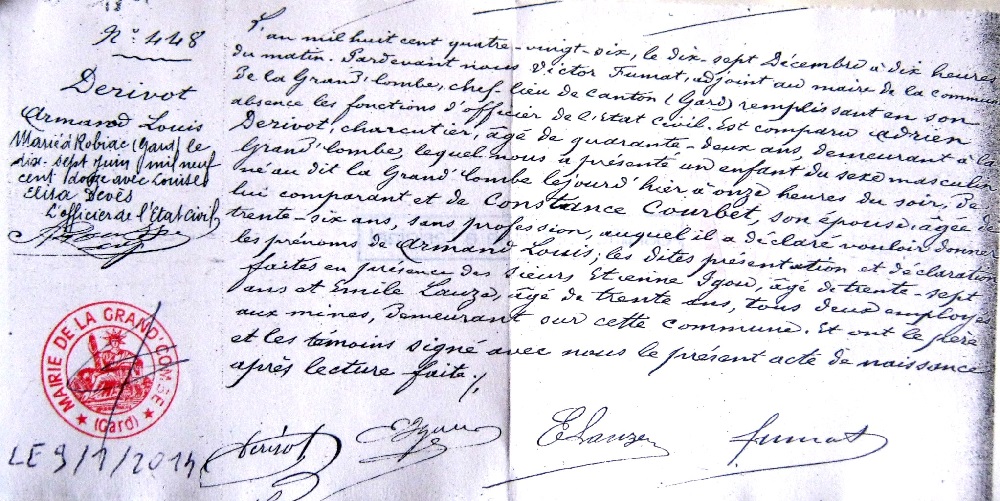 18
N° 448
Derivot
Armand Louis
Marié à Robiac (Gard) le
dix-sept juin mil neuf
cent douze avec Louise
Elisa Devès
L'officier de l'état civil
L'an mil huit cent quatre-vingt-dix, le dix-sept Décembre à dix heures
du matin. Pardevant nous Victor Fumat, adjoint au maire de la commune
De la Grand'Combe, chef-lieu de canton (Gard) remplissant en son
absence les fonctions d'officier de l'Etat Civil. Est comparu Adrien
Derivot, charcutier, âgé de quarante-deux ans, demeurant à la
Grand'Combe, lequel nous a présenté un enfant du sexe masculin
né au dit la Grand'Combe le jour d'hier à onze heures du soir, de
lui comparant et de Constance Courbet, son épouse, âgée de
trente-six ans, sans profession, auquel il a déclaré vouloir donner
les prénoms de Armand Louis; les dites présentation et déclaration
faites en présence des sieurs Etienne Igou, âgé de trente-sept
ans et Emile Lauze, âgé de trente ans, tous deux employés
aux mines, demeurant sur cette commune. Et ont le père
et les témoins signé avec nous le présent acte de naissance
après lecture faite./.
MAIRIE DE LA GRAND'COMBE
(Gard)
LE 9/1/2014
Derivot
E Lauze
Fumat